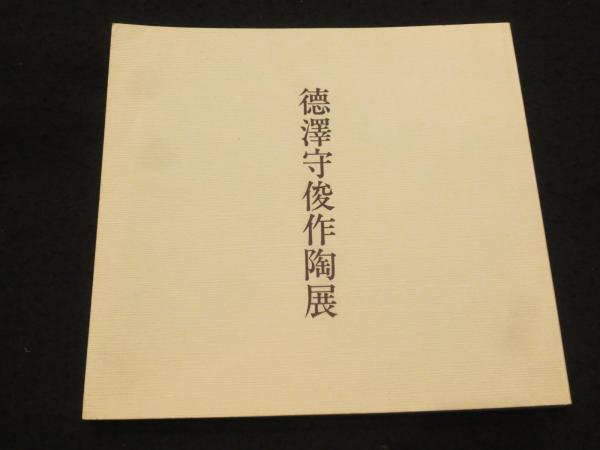 德澤守俊作陶展